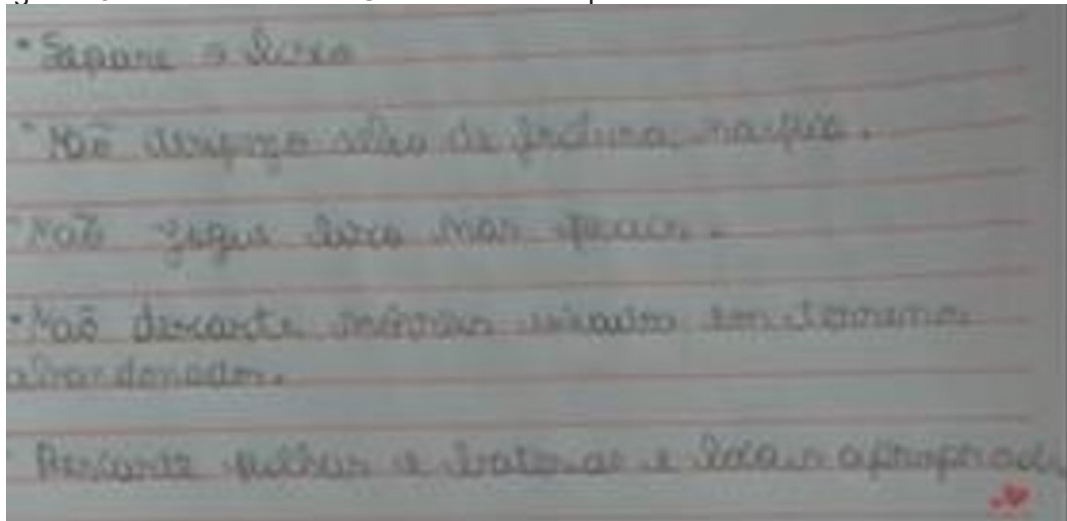 • Separe o lixo
• Não despeje óleo de fritura na pia.
• Não jogue lixo nas praias.
• Não descarte móveis usados em terrenos
abandonados.
Descarte pilhas e baterias e locais apropriado